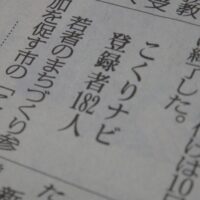 教
受
終了した。
には10日
こくりナビ
登録者182人
若者のまちづくり参
加を促す市の「こ
た
新